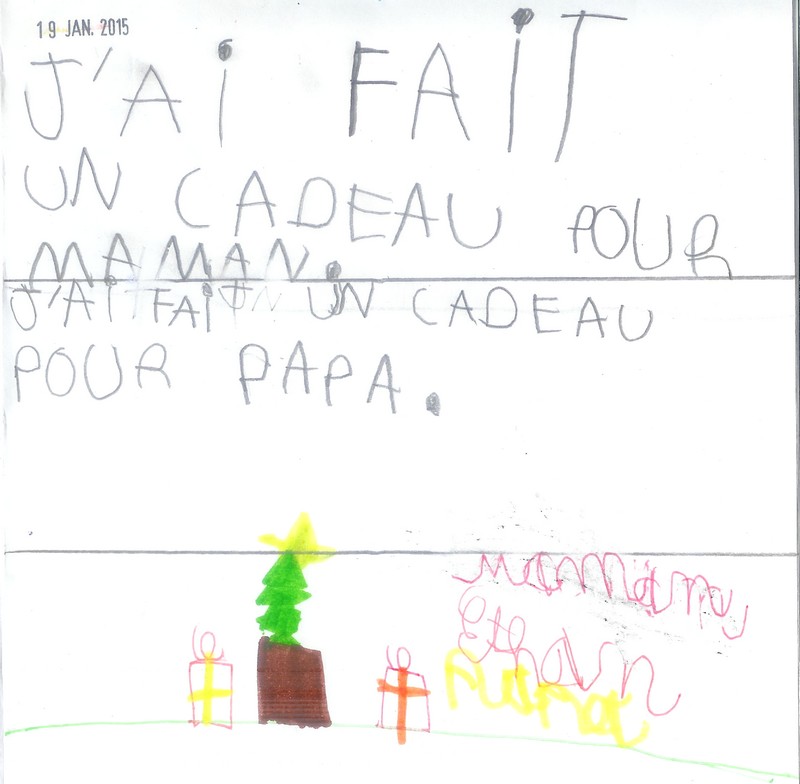 19 JAN. 2015
J'Ai FAiT
UN CADEAU POUR
MAMAN.
J'Ai FAi UN CADEAU
POUR PAPA.
Ethan